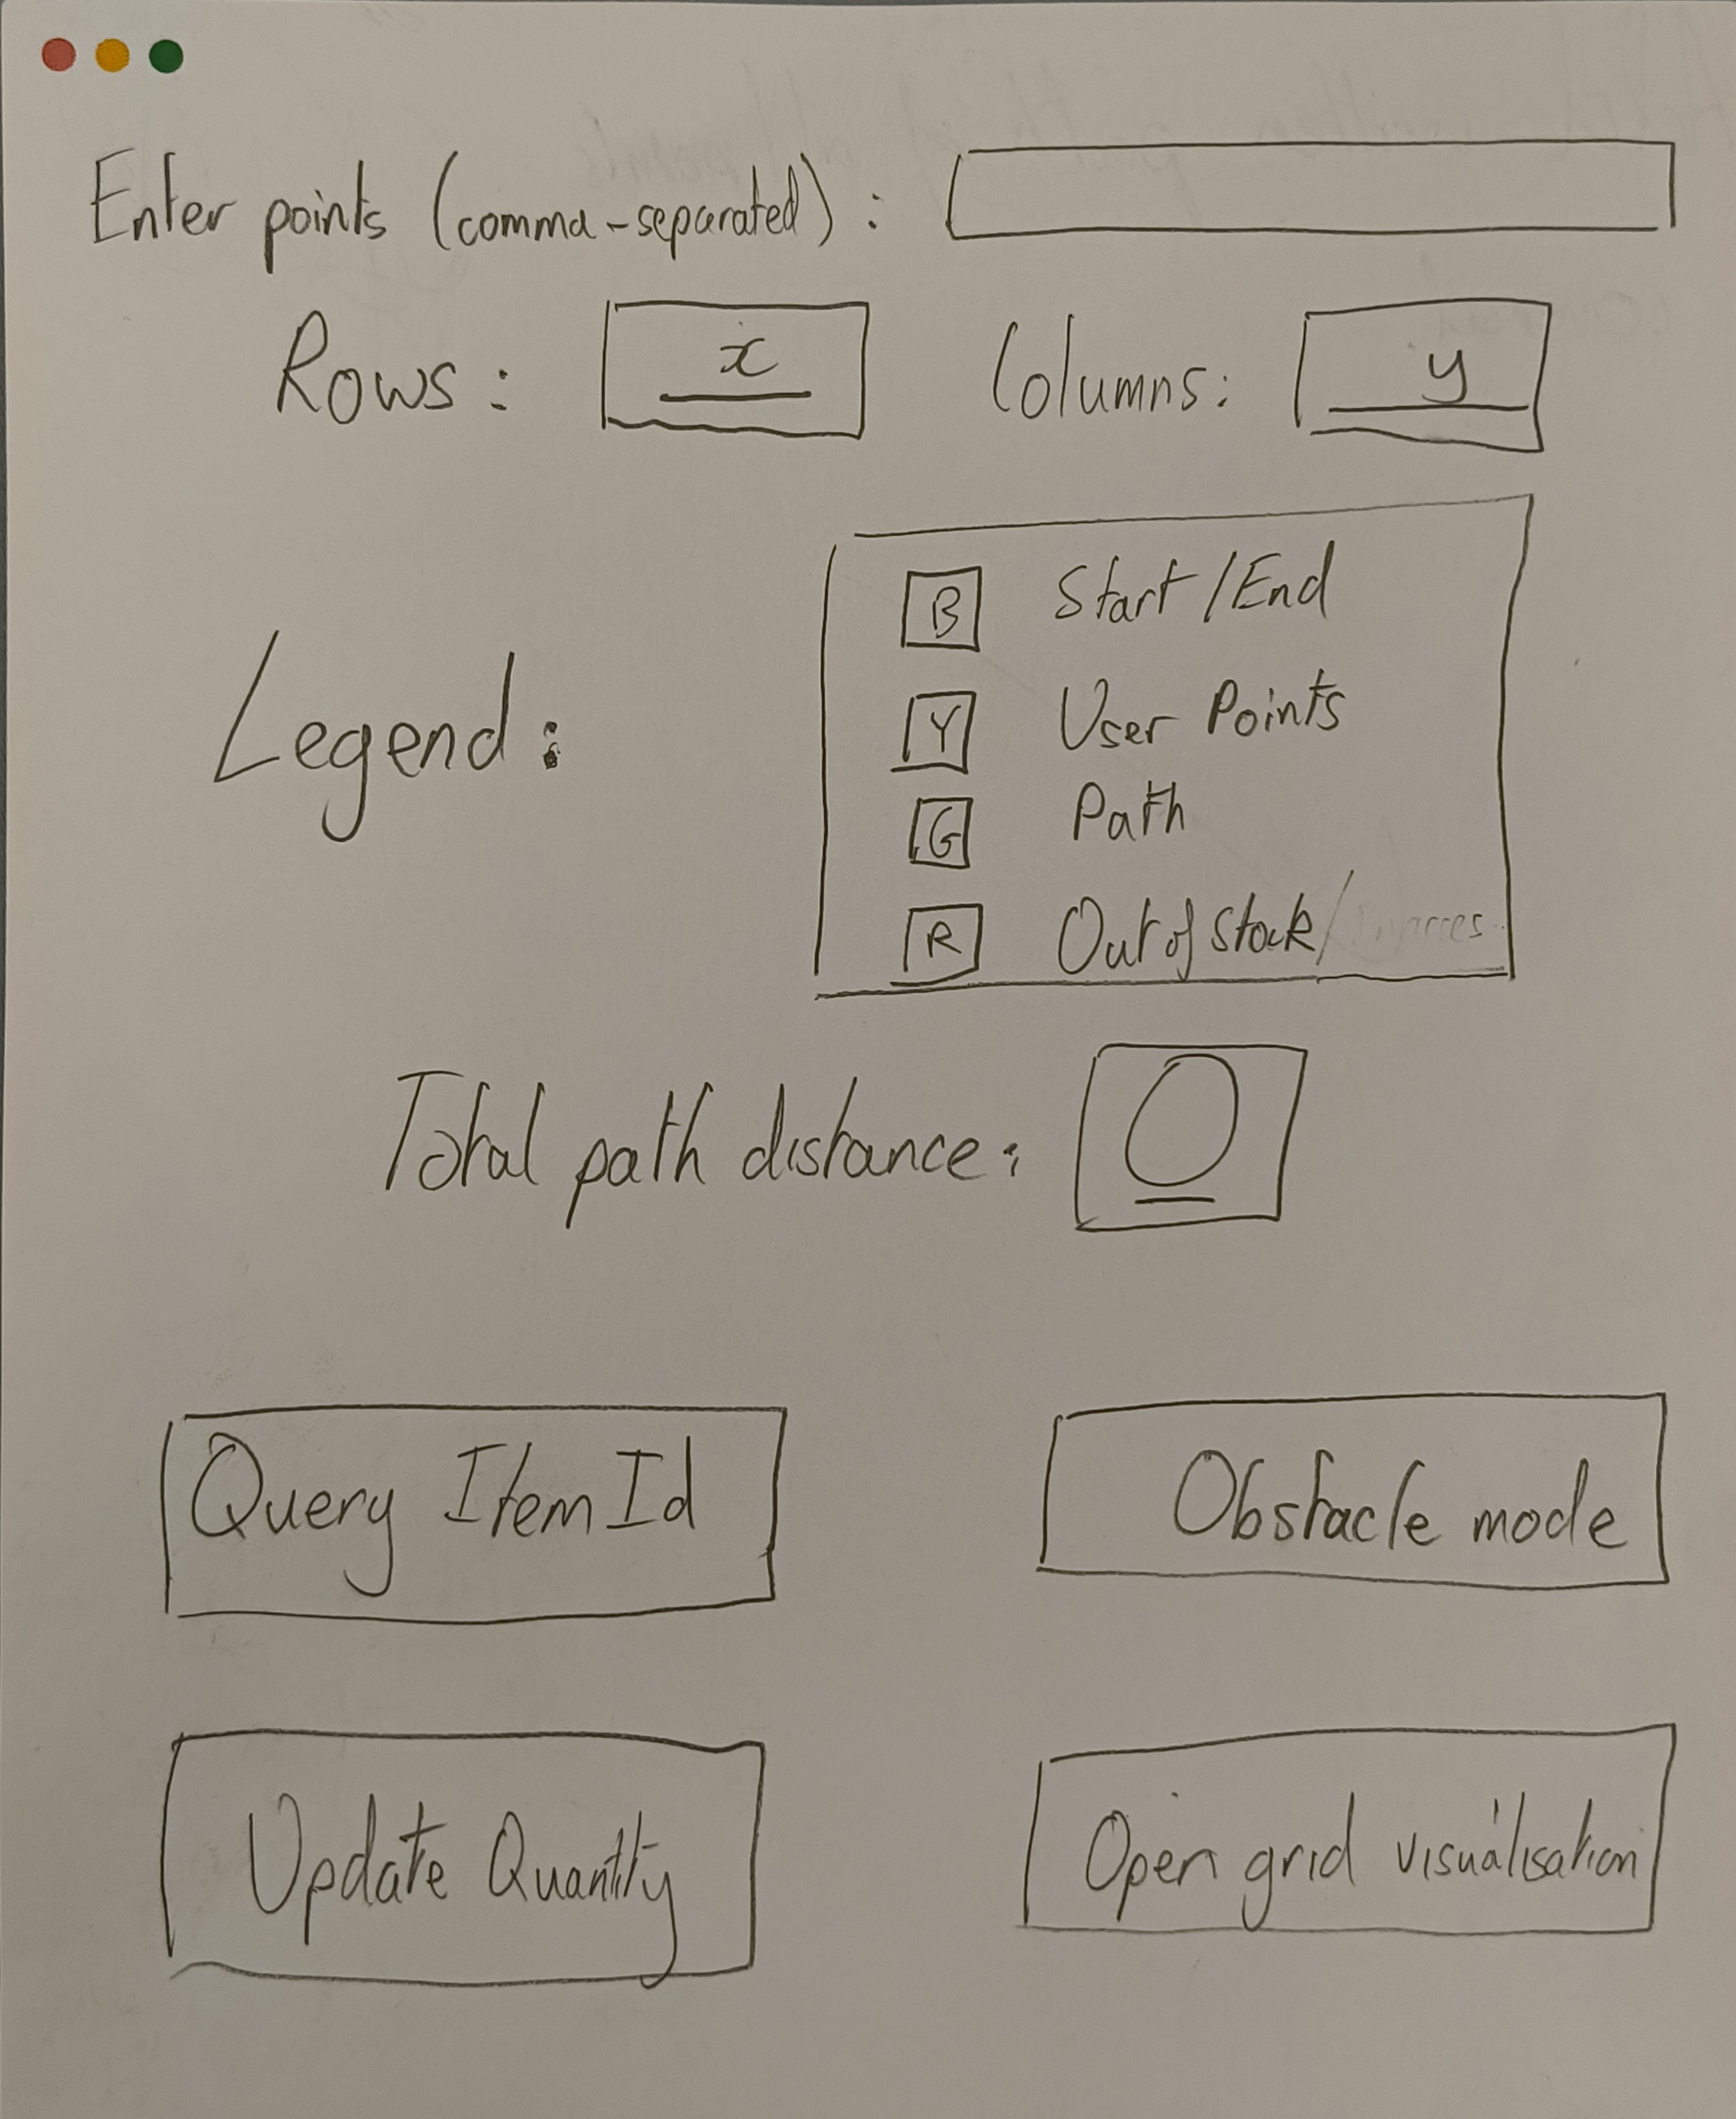 Enter points (comma-separated):
Rows: x Columns: y
Legend:
B Start/End
Y User Points
G Path
R Out of stock/
Total path distance: 0
Query Item Id
Obstacle mode
Update Quantity
Open grid visualisation